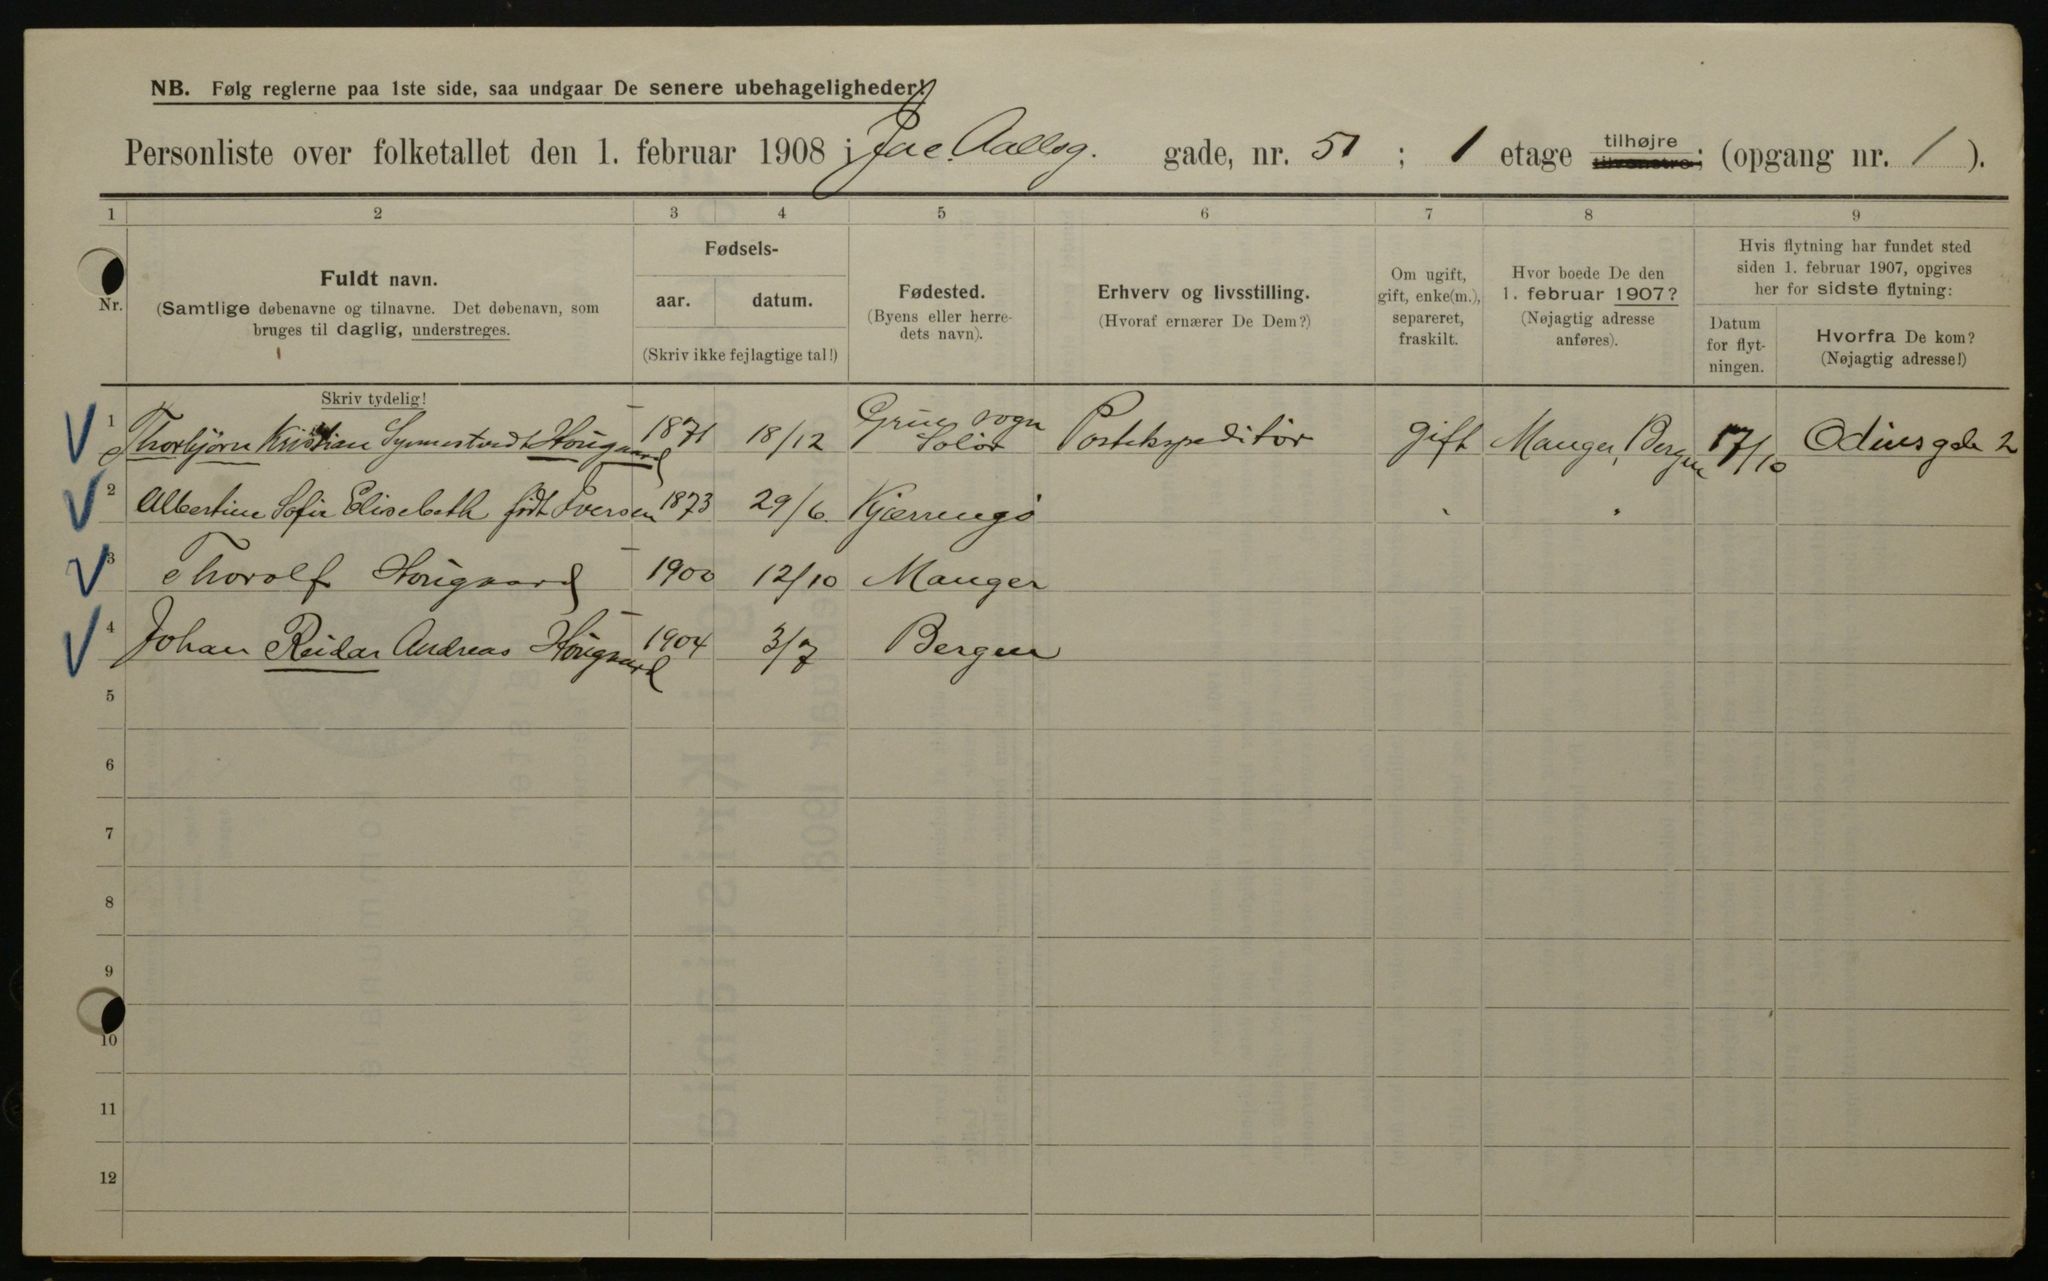 NB. Følg reglerne paa 1ste side, saa undgaar De senere ubehageligheder!
Personliste over folketallet den 1. februar 1908 i Jac. Aallsg. gade, nr. 51 ; 1 etage tilhøjre tilvenstre; (opgang nr. 1 ).
1 2 3 4 5 6 7 8 9
Nr.
Fuldt navn.
(Samtlige døbenavne og tilnavne. Det døbenavn, som
bruges til daglig, understreges.
Skriv tydelig!
Fødsels-
aar. datum.
(Skriv ikke fejlagtige tal!)
Fødested.
(Byens eller herre-
dets navn).
Erhverv og livsstilling.
(Hvoraf ernærer De Dem?)
Om ugift,
gift, enke(m.),
separeret,
fraskilt.
Hvor boede De den
1. februar 1907?
(Nøjagtig adresse
anføres).
Hvis flytning har fundet sted
siden 1. februar 1907, opgives
her for sidste flytning:
Datum
for flyt-
ningen.
Hvorfra De kom?
(Nøjagtig adresse!)
1 Thorbjörn Kristian Synnestvedt Hougaard 1871 18/12 Grue sogn Solør Postekspeditør gift Manger, Bergen 17/10 Odinsgade 2
2 Albertine Sofie Elisebeth født Iversen 1873 29/6. Kjærringø " "
3 Thorolf Hougaard 1900 12/10 Manger
4 Johan Reidar Andreas Hougaard 1904 3/7 Bergen
5
6
7
8
9
10
11
12